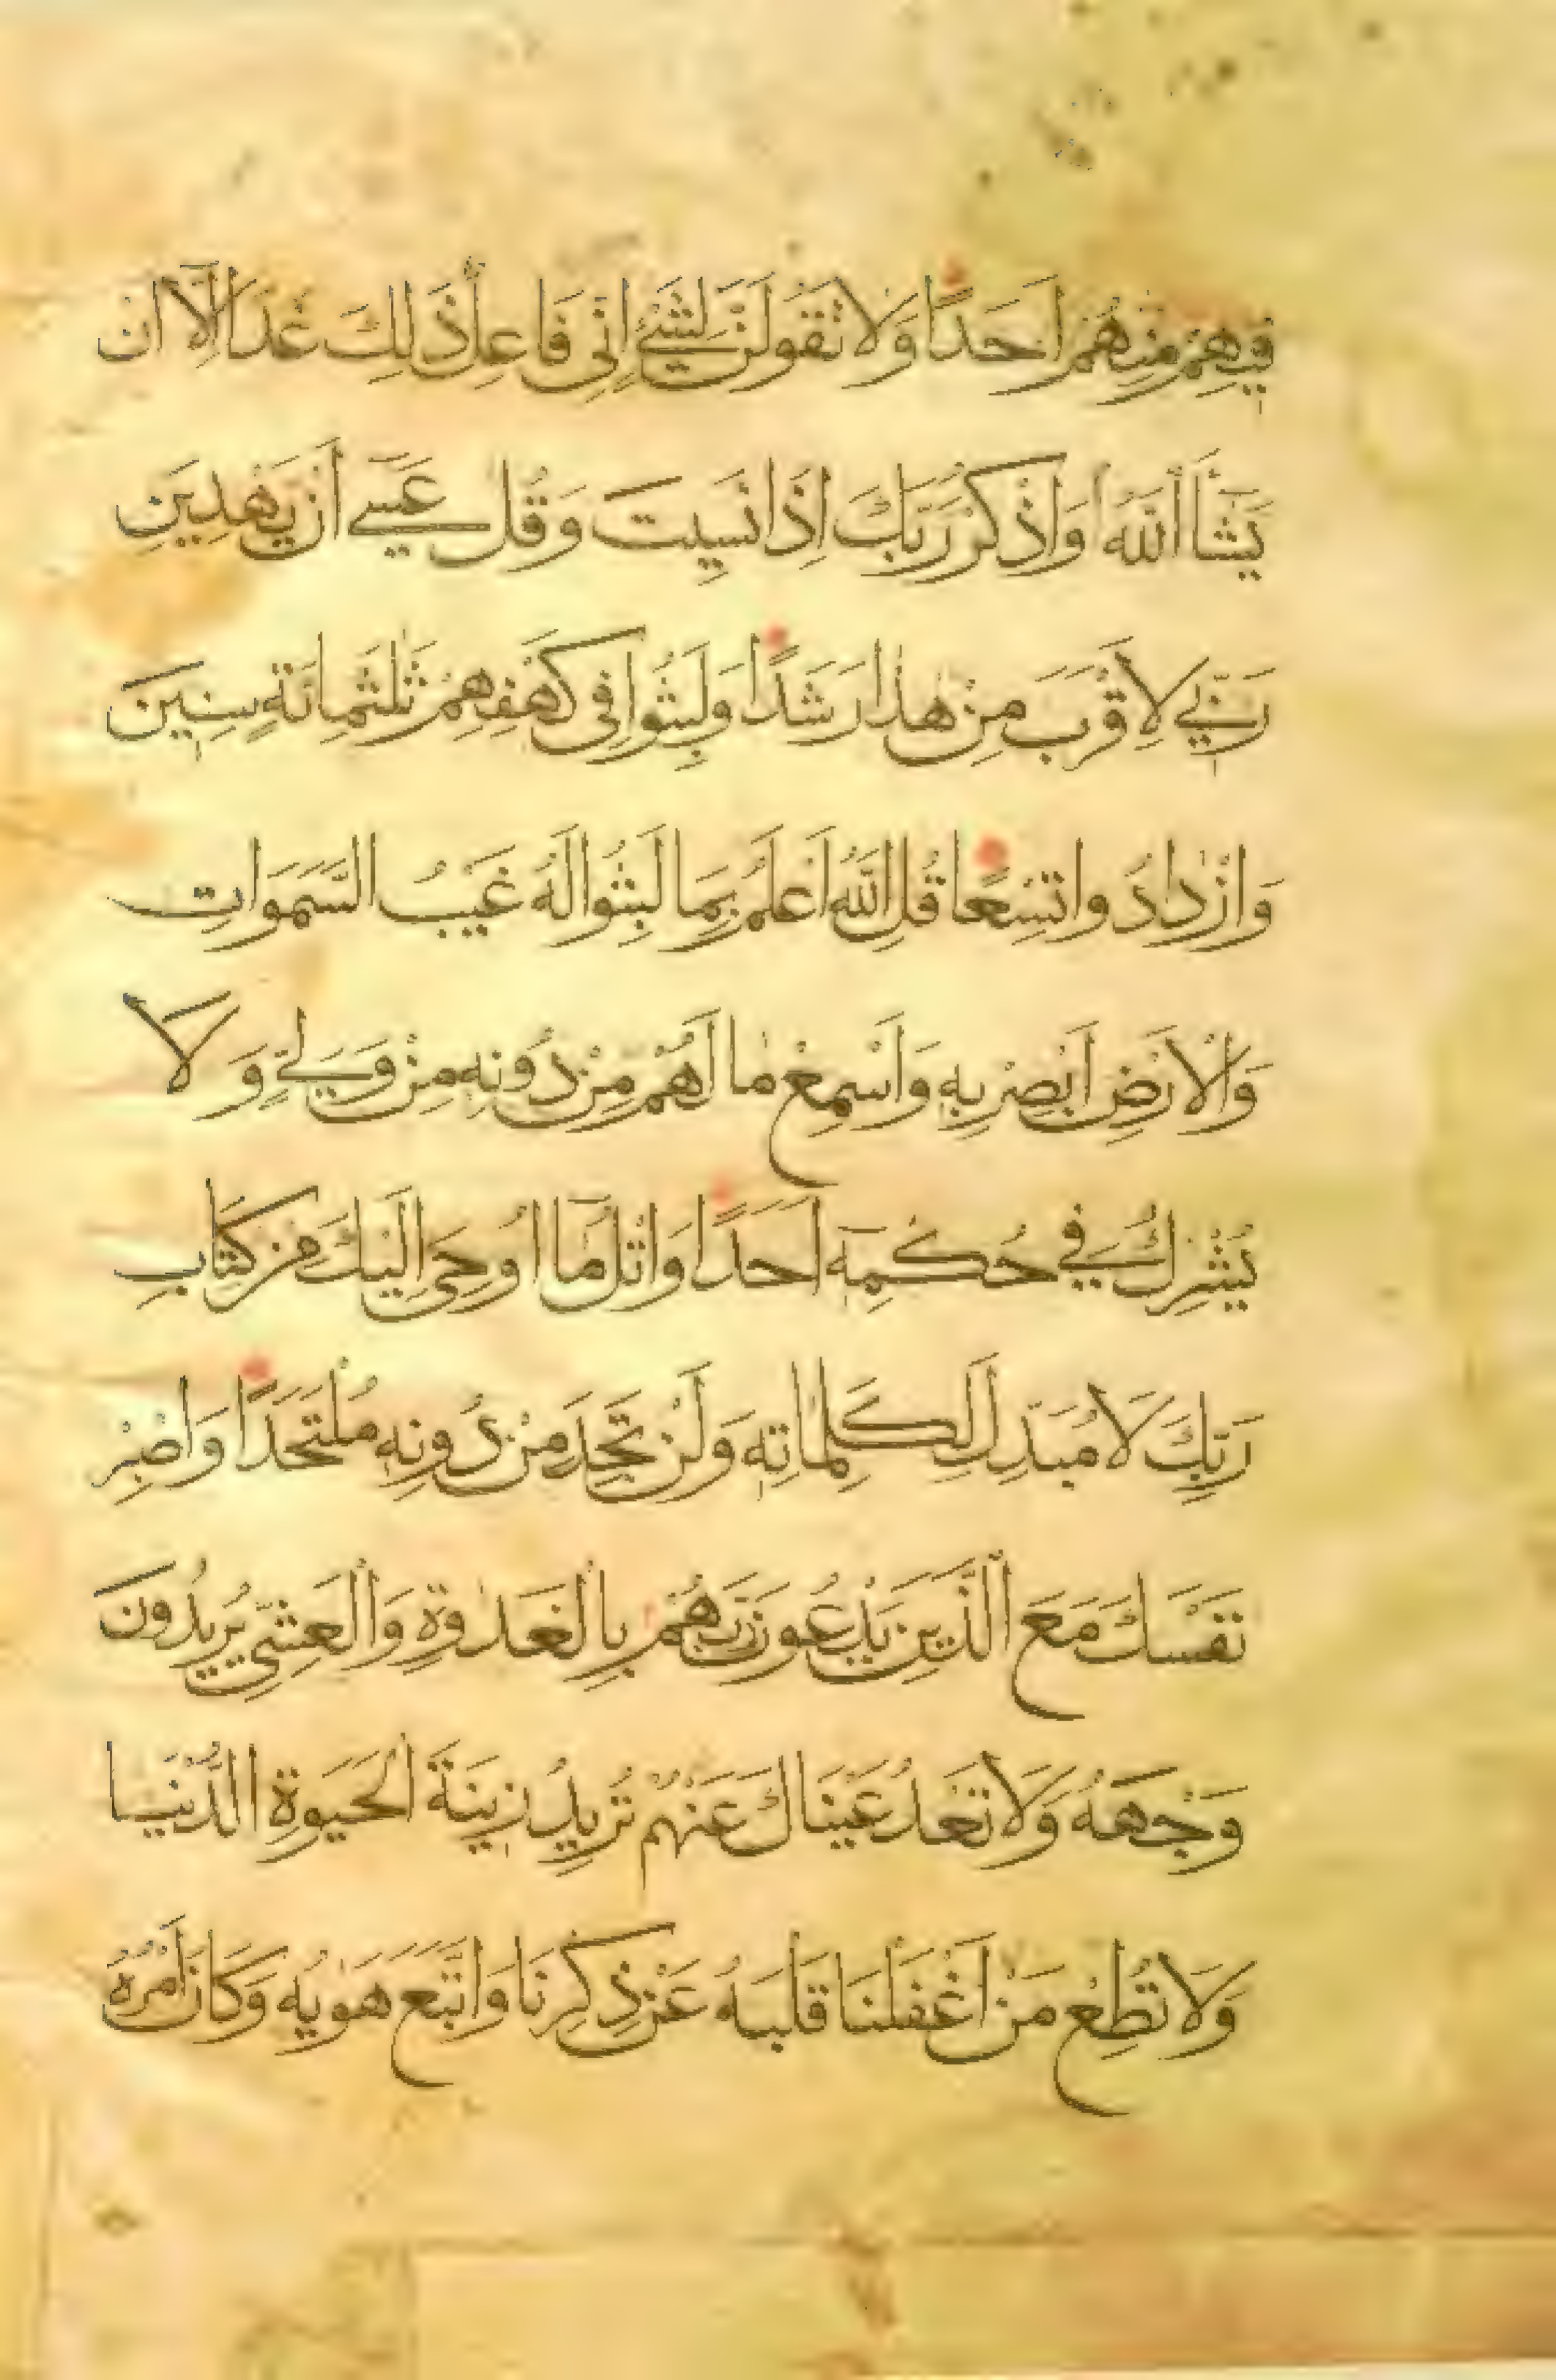 فِيهِمْ مِنْهُمْ اَحَدًا وَلَا تَقُولَنَّ لِشَيْءٍ اِنِّي فَاعِلٌ ذَلِكَ غَدًا اِلَّآ اَنْ
يَشَآءَ اللّٰهُ وَاذْكُرْ رَبَّكَ اِذَا نَسِيتَ وَقُلْ عَسٰٓى اَنْ يَهْدِيَنِ
رَبِّي لِاَقْرَبَ مِنْ هٰذَا رَشَدًا وَلَبِثُوا فِي كَهْفِهِمْ ثَلٰثَمِائَةٍ سِنِينَ
وَازْدَادُوا تِسْعًا قُلِ اللّٰهُ اَعْلَمُ بِمَا لَبِثُوا لَهُ غَيْبُ السَّمَوَاتِ
وَالْاَرْضِ اَبْصِرْ بِهِ وَاَسْمِعْ مَا لَهُمْ مِنْ دُونِهِ مِنْ وَلِيٍّ وَلَا
يُشْرِكُ فِي حُكْمِهِٓ اَحَدًا وَاتْلُ مَآ اُوحِيَ اِلَيْكَ مِنْ كِتَابِ
رَبِّكَ لَا مُبَدِّلَ لِكَلِمَاتِهِ وَلَنْ تَجِدَ مِنْ دُونِهِ مُلْتَحَدًا وَاصْبِرْ
نَفْسَكَ مَعَ الَّذِينَ يَدْعُونَ رَبَّهُمْ بِالْغَدٰوةِ وَالْعَشِيِّ يُرِيدُونَ
وَجْهَهُ وَلَا تَعْدُ عَيْنَاكَ عَنْهُمْ تُرِيدُ زِينَةَ الْحَيَوةِ الدُّنْيَا
وَلَا تُطِعْ مَنْ اَغْفَلْنَا قَلْبَهُ عَنْ ذِكْرِنَا وَاتَّبَعَ هَوٰيهُ وَكَانَ اَمْرُهُ